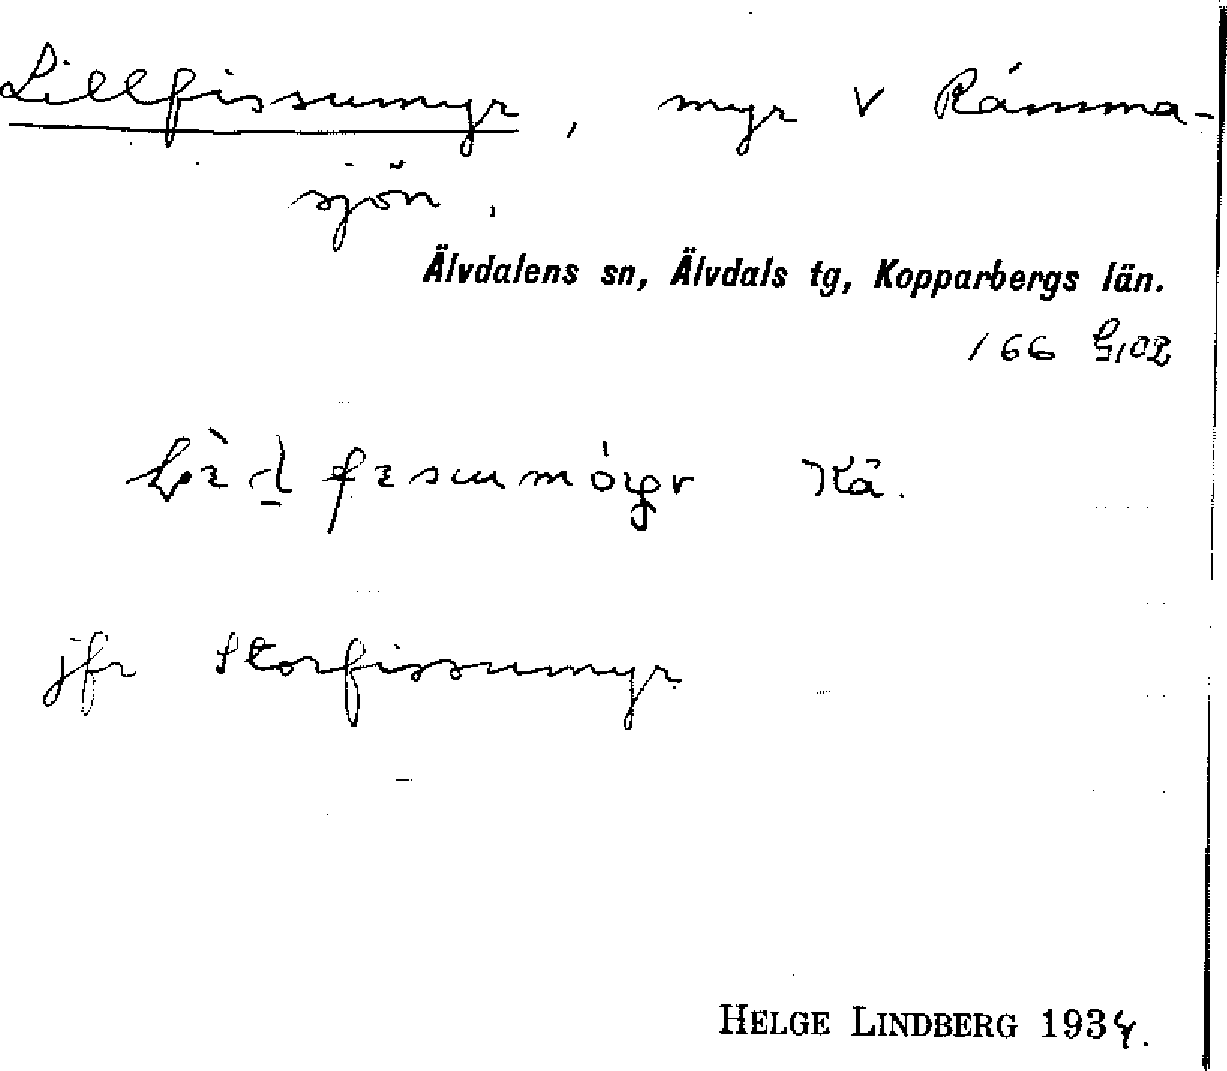 Lillfissumyr, myr V Rámma-
sjön.
Älvdalens sn, Älvdals tg, Kopparbergs län.
166
Kä.
jfr Storfissumyr
HELGE LINDBERG 1934.